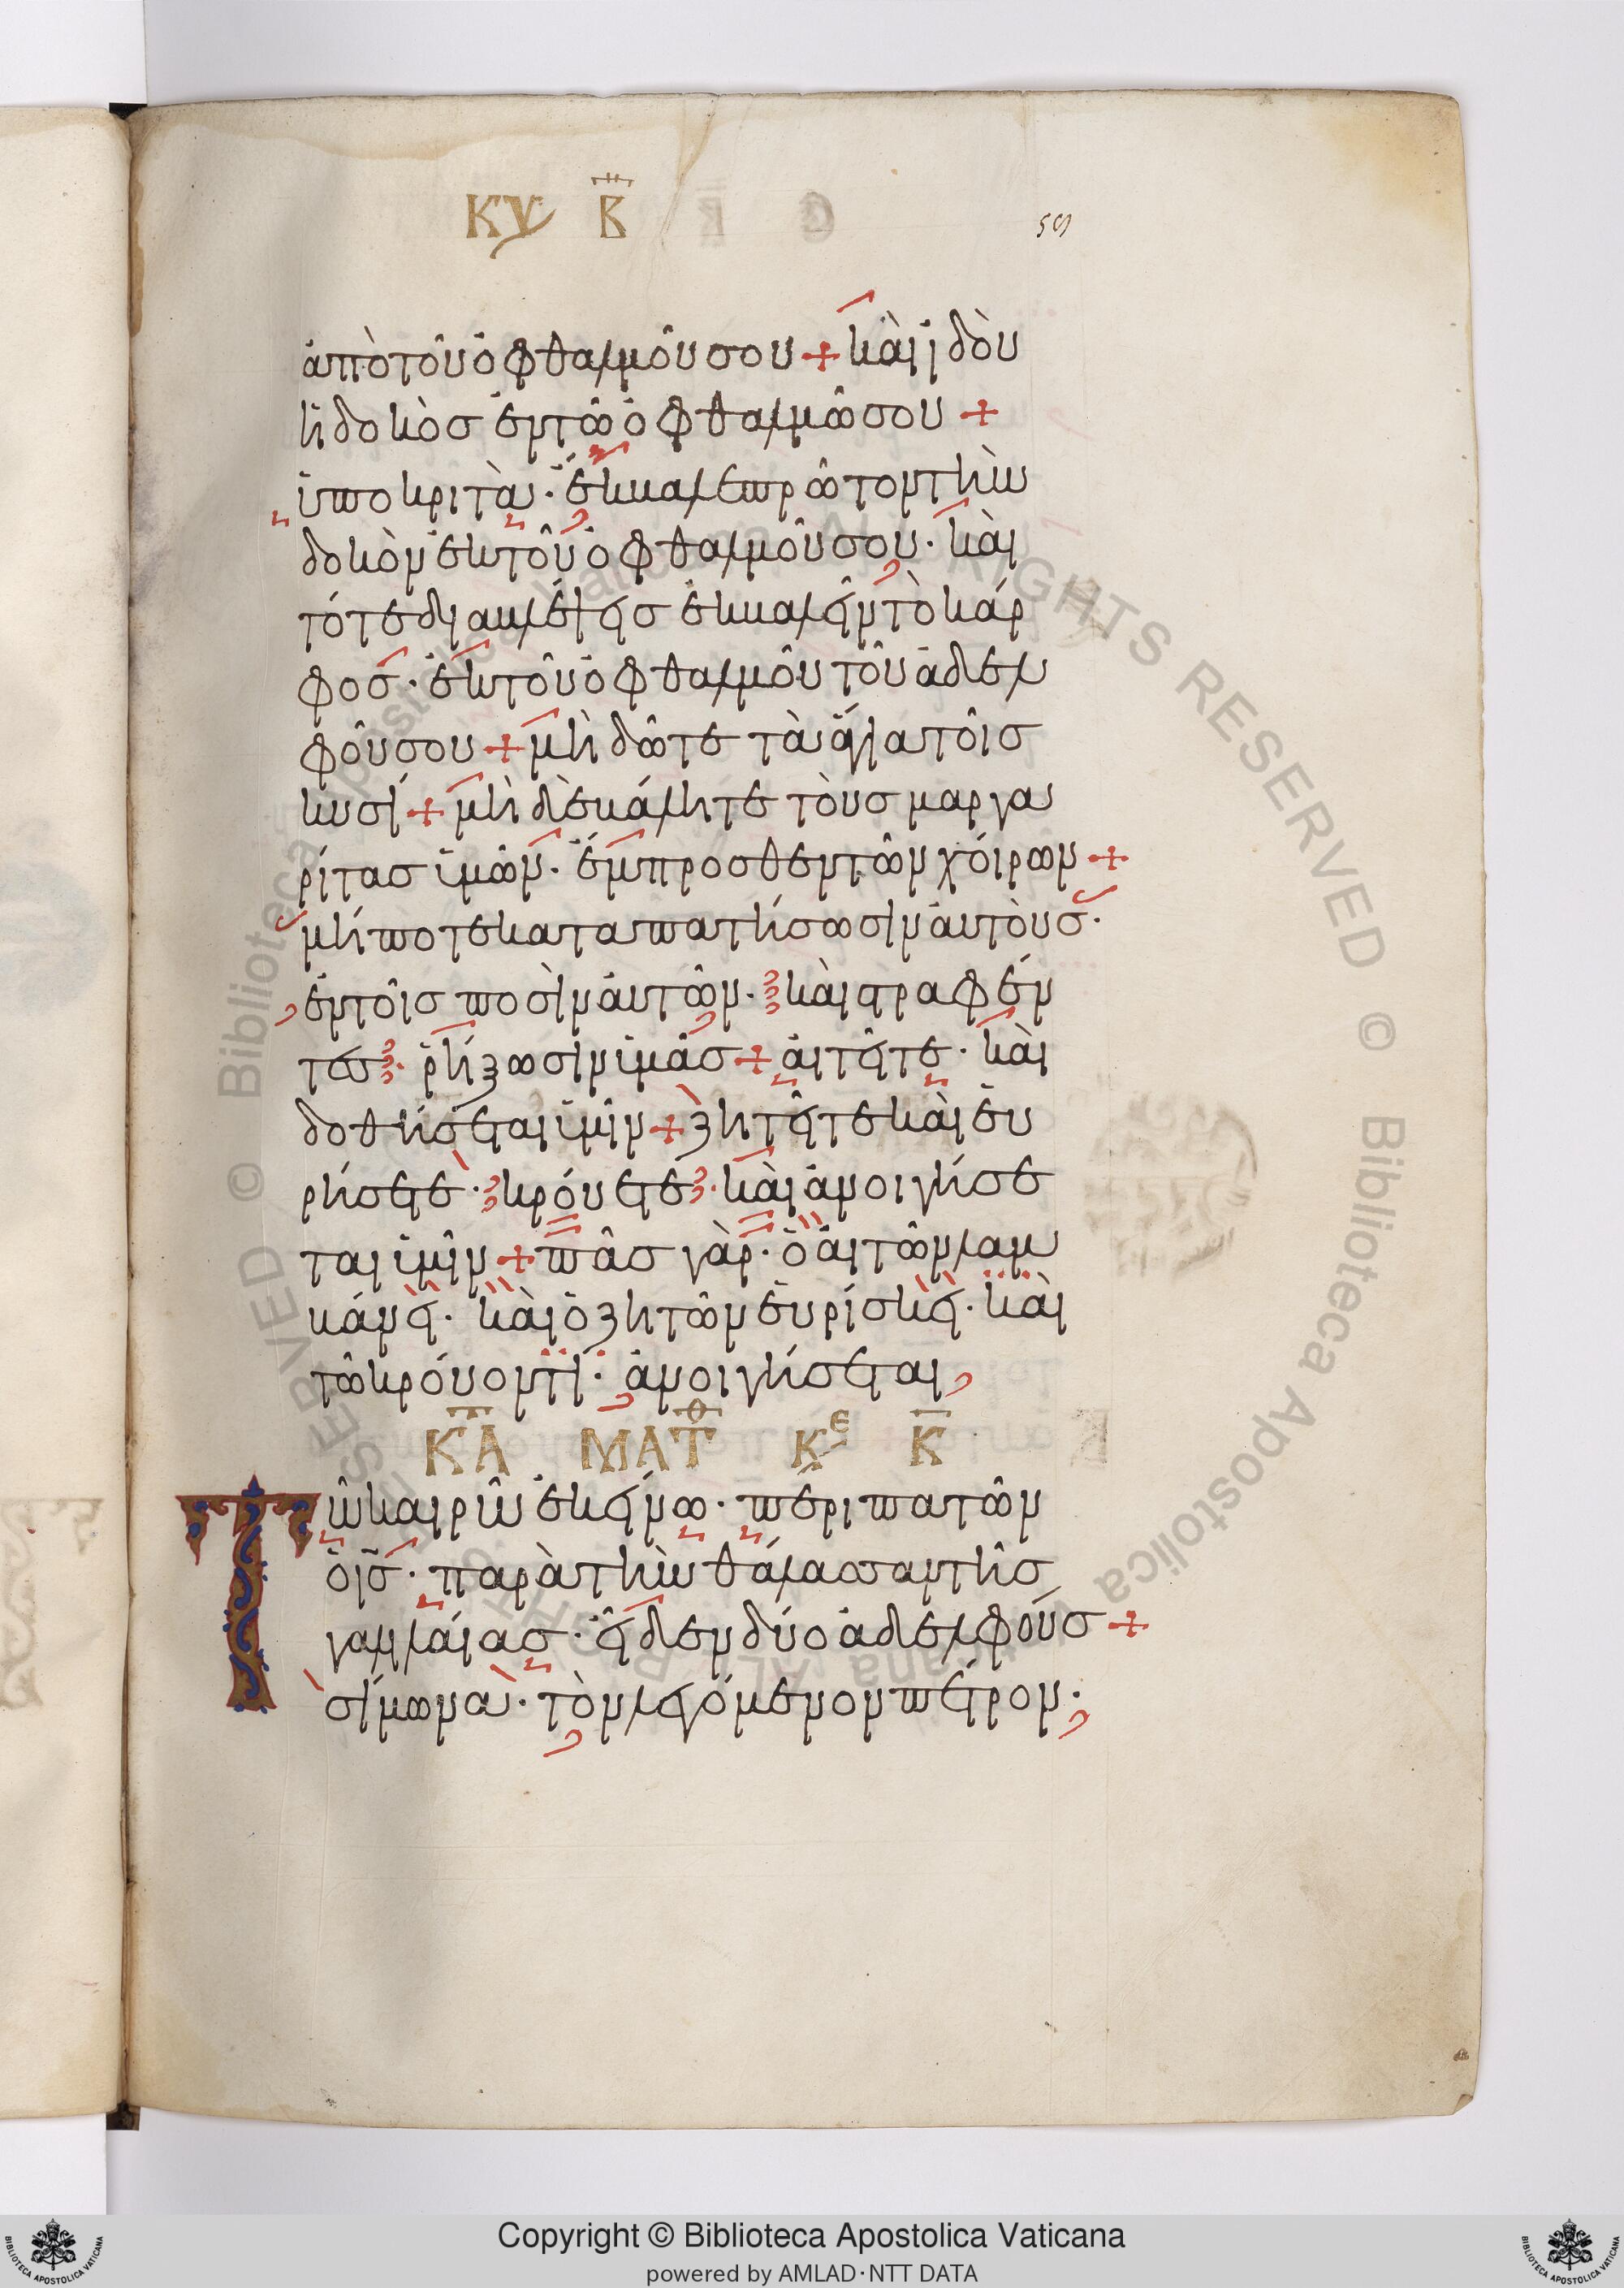 ΚΥ Β 59
ἀπὸ τοῦ ὀφθαλμοῦ σου + καὶ ἰδοὺ
ἡ δοκὸσ ἐν τῶ ὀφθαλμῶ σου +
ὑποκριτὰ · ἔκκαλε πρῶτον τὴν
δοκὸν ἐκ τοῦ ὀφθαλμοῦ σου · καὶ
τότε διακλέψεισ ἐκκαλεῖν τὸ κάρ
φοσ · ἐκ τοῦ ὀφθαλμοῦ τοῦ ἀδελ
φοῦ σου + μὴ δῶτε τὰ ἅγια τοῖσ
κυσί + μὴ δὲ κάλητε τοὺσ μαργα
ρίτασ ὑμῶν · ἔμπροσθεν τῶν χοίρων +
μήποτε καταπατήσωσιν αὐτοὺσ ·
ἐν τοῖσ ποσὶν αὐτῶν · καὶ στραφέν
τεσ · ῥήξωσιν ὑμᾶσ + αἰτεῖτε · καὶ
δοθήσεται ὑμῖν + ζητεῖτε καὶ εὑ
ρήσετε · κρούετε · καὶ ἀνοιγήσε
ται ὑμῖν + πᾶσ γὰρ · ὁ αἰτῶν λαμ
κάνει · καὶ ὁ ζητῶν εὑρίσκει · καὶ
τῶ κρούοντι · ἀνοιγήσεται
ΚΑ ΜΑΤΘ ΚΕ Κ
Τῶ καιρῶ ἐκείνω · περιπατῶν
ὁ ισ · παρὰ τὴν θάλασσαν τῆσ
γαλιλαίασ · εἶδεν δύο ἀδελφούσ +
σίμωνα · τὸν λεγόμενον πέτρον ·
Copyright © Biblioteca Apostolica Vaticana
powered by AMLAD·NTT DATA